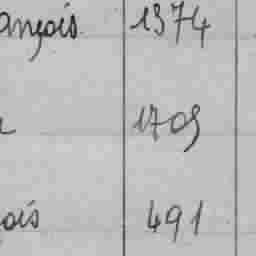 ançois 1374
1709
ois 491